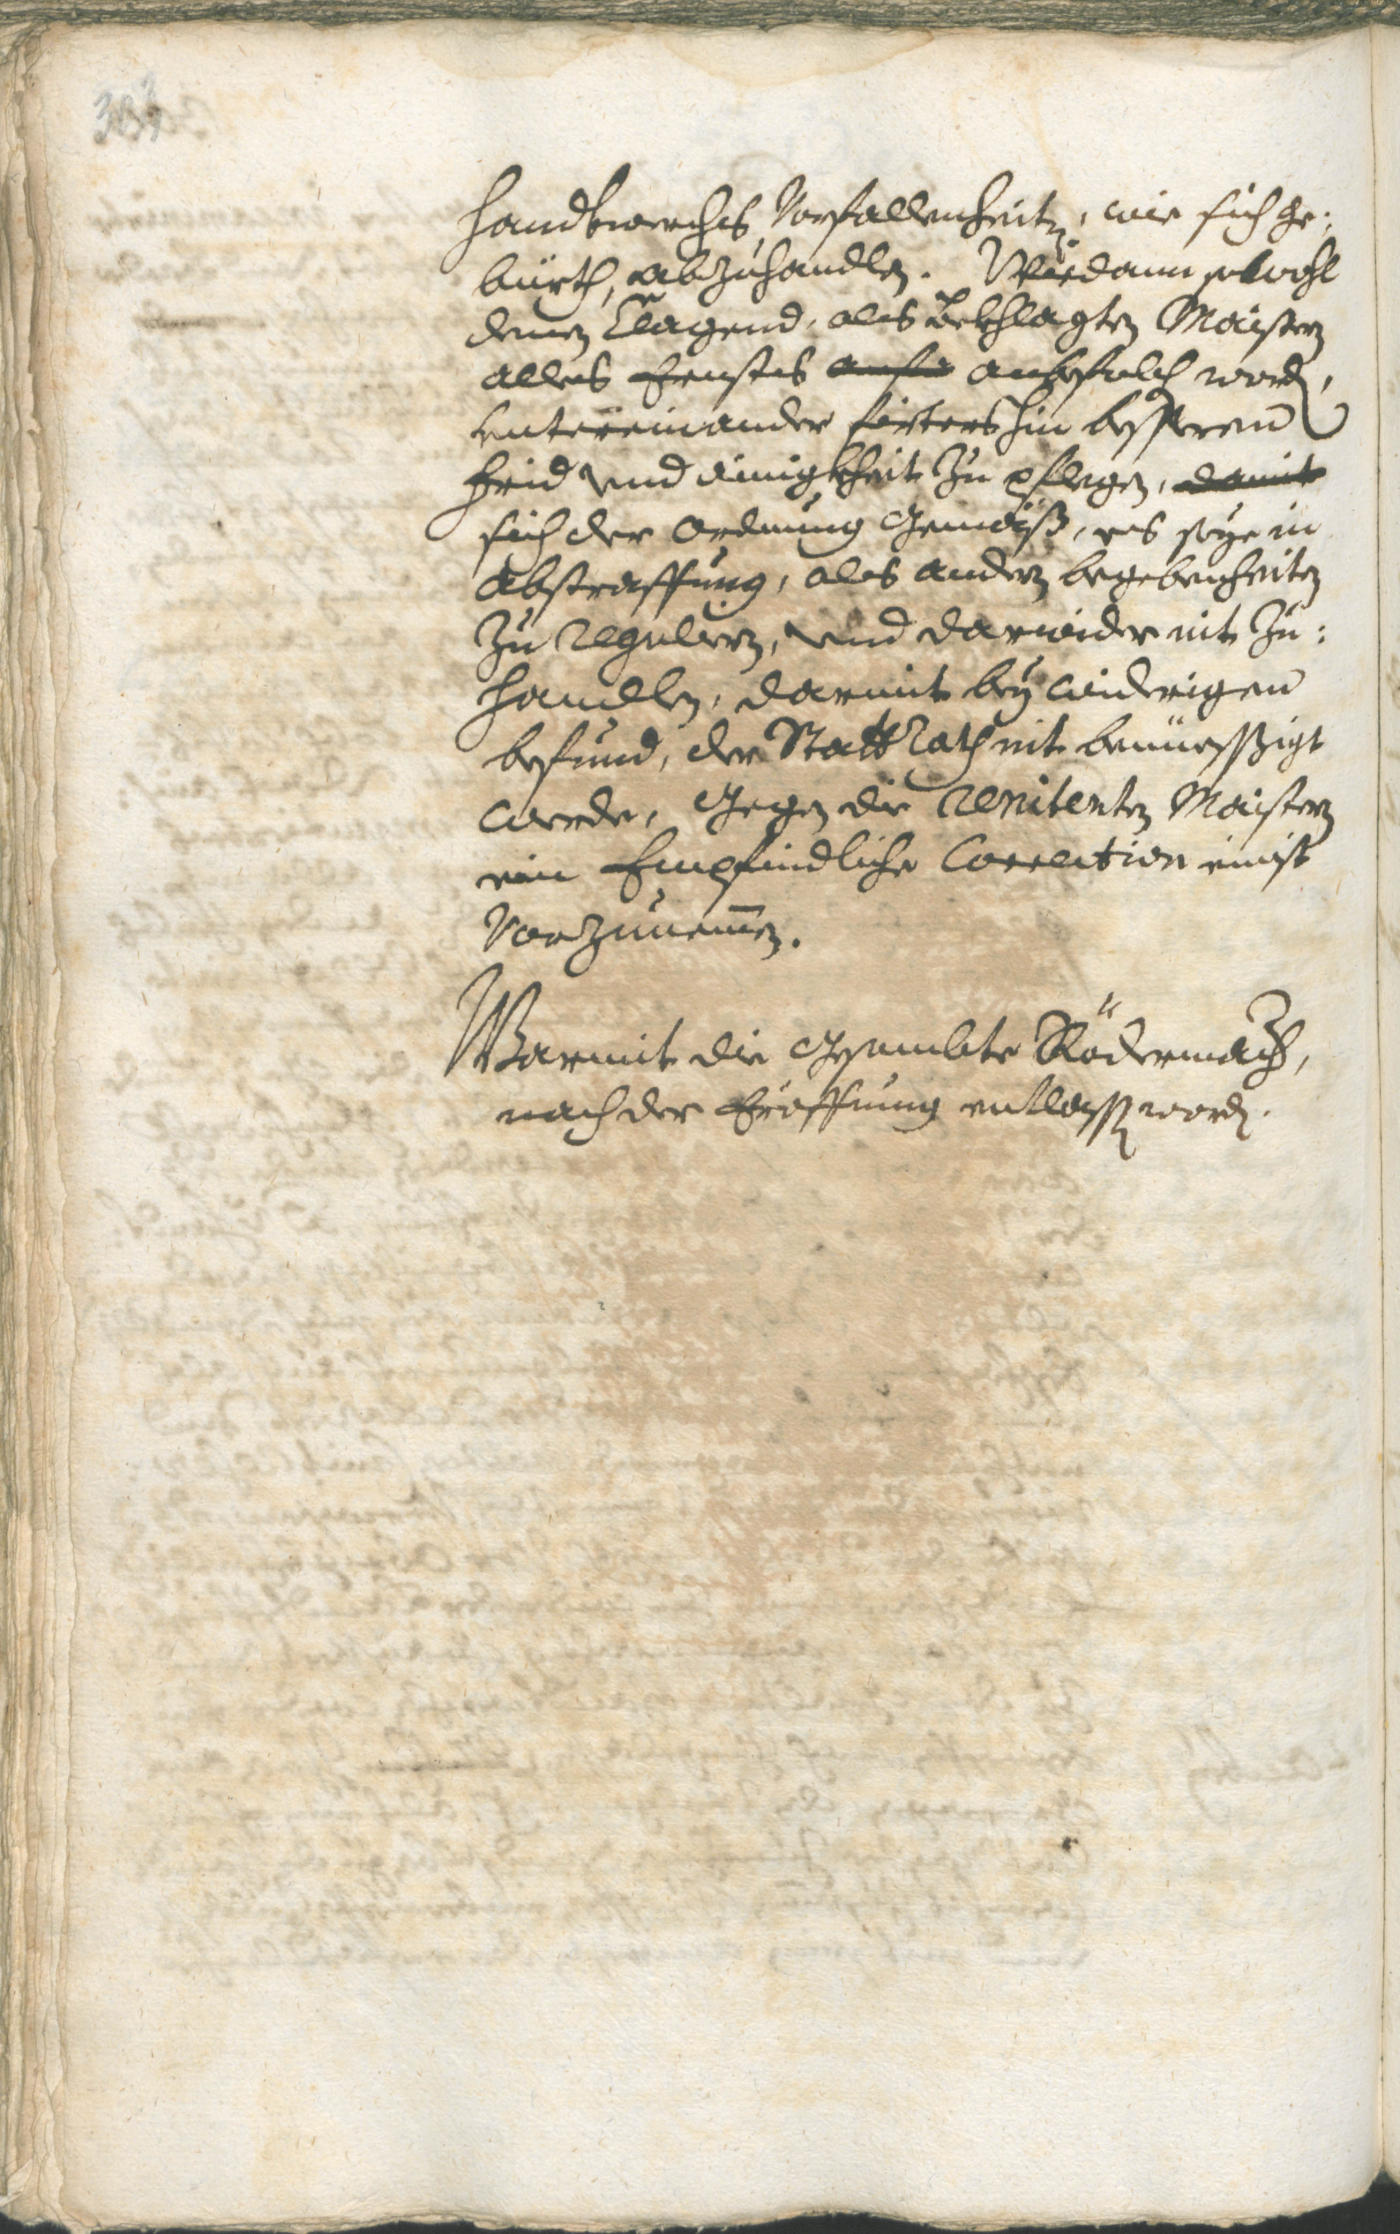 handtwerchs Vorfallenheiten, wie sich ge:
bürth, abzuhandlen. Wie dann sowohl
denen Clagend, als beklagten Maistern
alles Ernstes anbefolchen worden,
untereinander firtershin besseren
frid und ainigkheit zu pflegen,
sich der Ordnung gemäß, es seye in
Abstraffung, als andern begebenheiten
zu regulieren, und darwider nit zu:
handlen, darmit bey widerigen
befund, der Statt Rath nit bemüessiget
werde, gegen die renitenten Maistern
ein Empfindliche Correction
vorzunemmen.
Warmit die gesambte Rädermacher,
nach der Eröffnung entlassen worden.